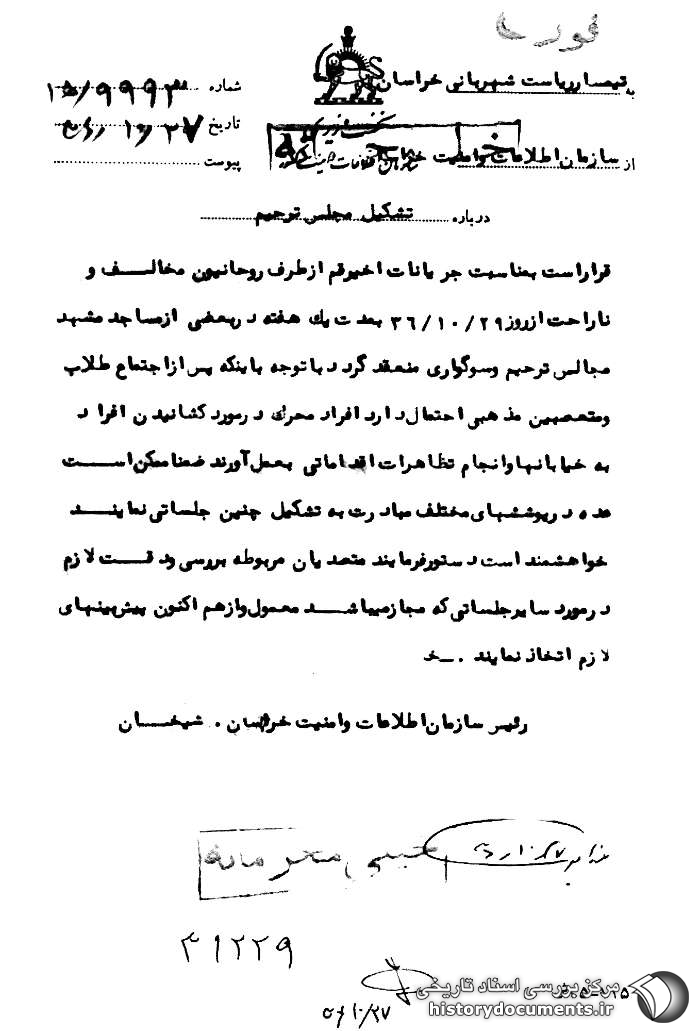 به تیمسار ریاست شهربانی خراسان
شماره ۱۵/۹۹۹۳
از سازمان اطلاعات و امنیت خراسان
تاریخ
پیوست
درباره تشکیل مجلس ترحیم
قرار است بمناسبت جریانات اخیر قم از طرف روحانیون مخالف و
ناراحت از روز ۳۶/۱۰/۲۹ بمدت یك هفته در بعضی از مساجد مشهد
مجالس ترحیم و سوگواری منعقد گردد با توجه باینکه پس از اجتماع طلاب
و متعصبین مذهبی احتمال دارد افراد محرك در مورد کشانیدن افراد
به خیابانها و انجام تظاهرات اقداماتی بعمل آورند ضمنا ممکن است
عده در پوششهای مختلف مبادرت به تشکیل چنین جلساتی نمایند
خواهشمند است دستور فرمایند متصدیان مربوطه بررسی و دقت لازم
در مورد سایر جلساتی که مجاز میباشد معمول و از هم اکنون پیش بینیهای
لازم اتخاذ نمایند . ـ خ
رئیس سازمان اطلاعات و امنیت خراسان . شیخان
خیلی محرمانه
۴۱۲۲۹
مرکز بررسی اسناد تاریخی
historydocuments.ir